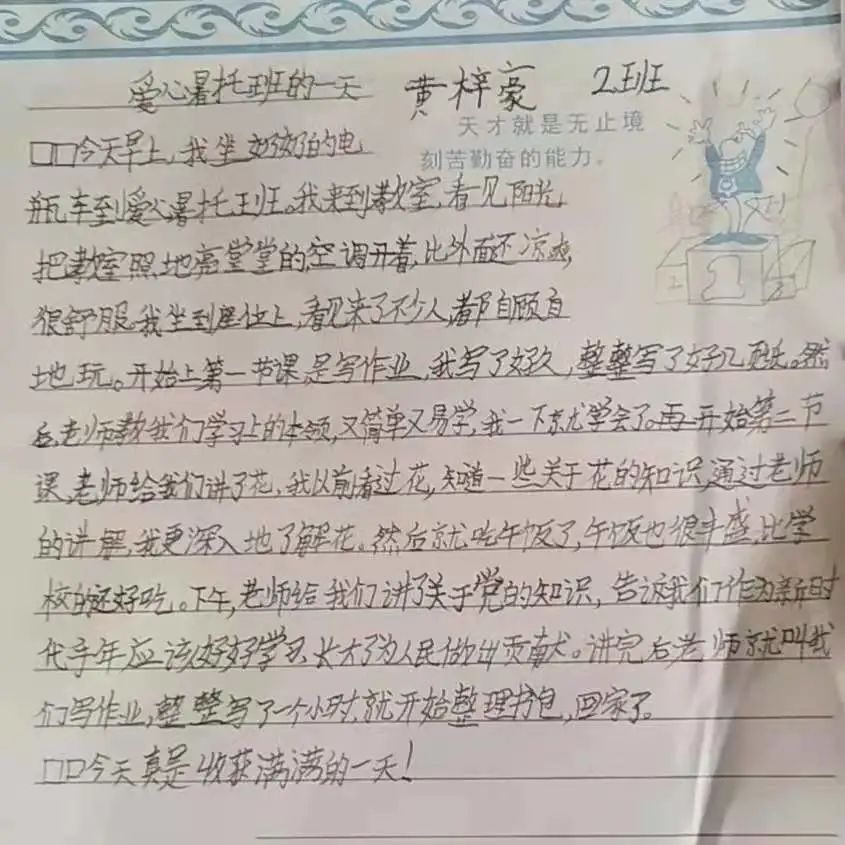 爱心暑托班的一天 黄梓豪 2班
天才就是无止境
刻苦勤奋的能力。
□□今天早上,我坐奶奶的电
瓶车到爱心暑托班。我来到教室,看见阳光
把教室照地亮堂堂的,空调开着,比外面还凉爽,
很舒服。我坐到座位上,看见来了不少人,都自顾自
地玩。开始上第一节课,是写作业,我写了好久,整整写了好几页纸。然
后,老师教我们学习上的本领,又简单又易学,我一下就学会了。再开始第二节
课,老师给我们讲了花,我以前看过花,知道一些关于花的知识,通过老师
的讲解,我更深入地了解花。然后就吃午饭了,午饭也很丰盛,比学
校的还好吃。下午,老师给我们讲了关于党的知识,告诉我们作为新时
代少年应该好好学习,长大了为人民做出贡献。讲完后,老师就叫我
们写作业,整整写了一个小时,就开始整理书包,回家了。
□□今天真是收获满满的一天!